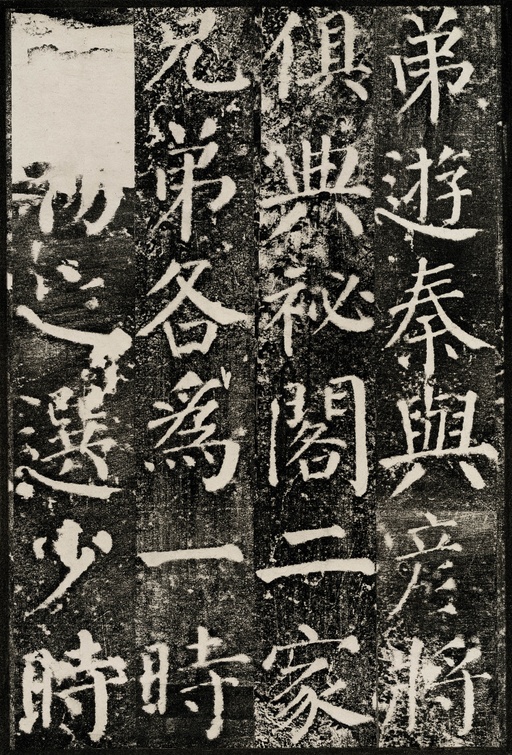 弟遊秦與彦將
俱典祕閣二家
兄弟各為一時
選少時